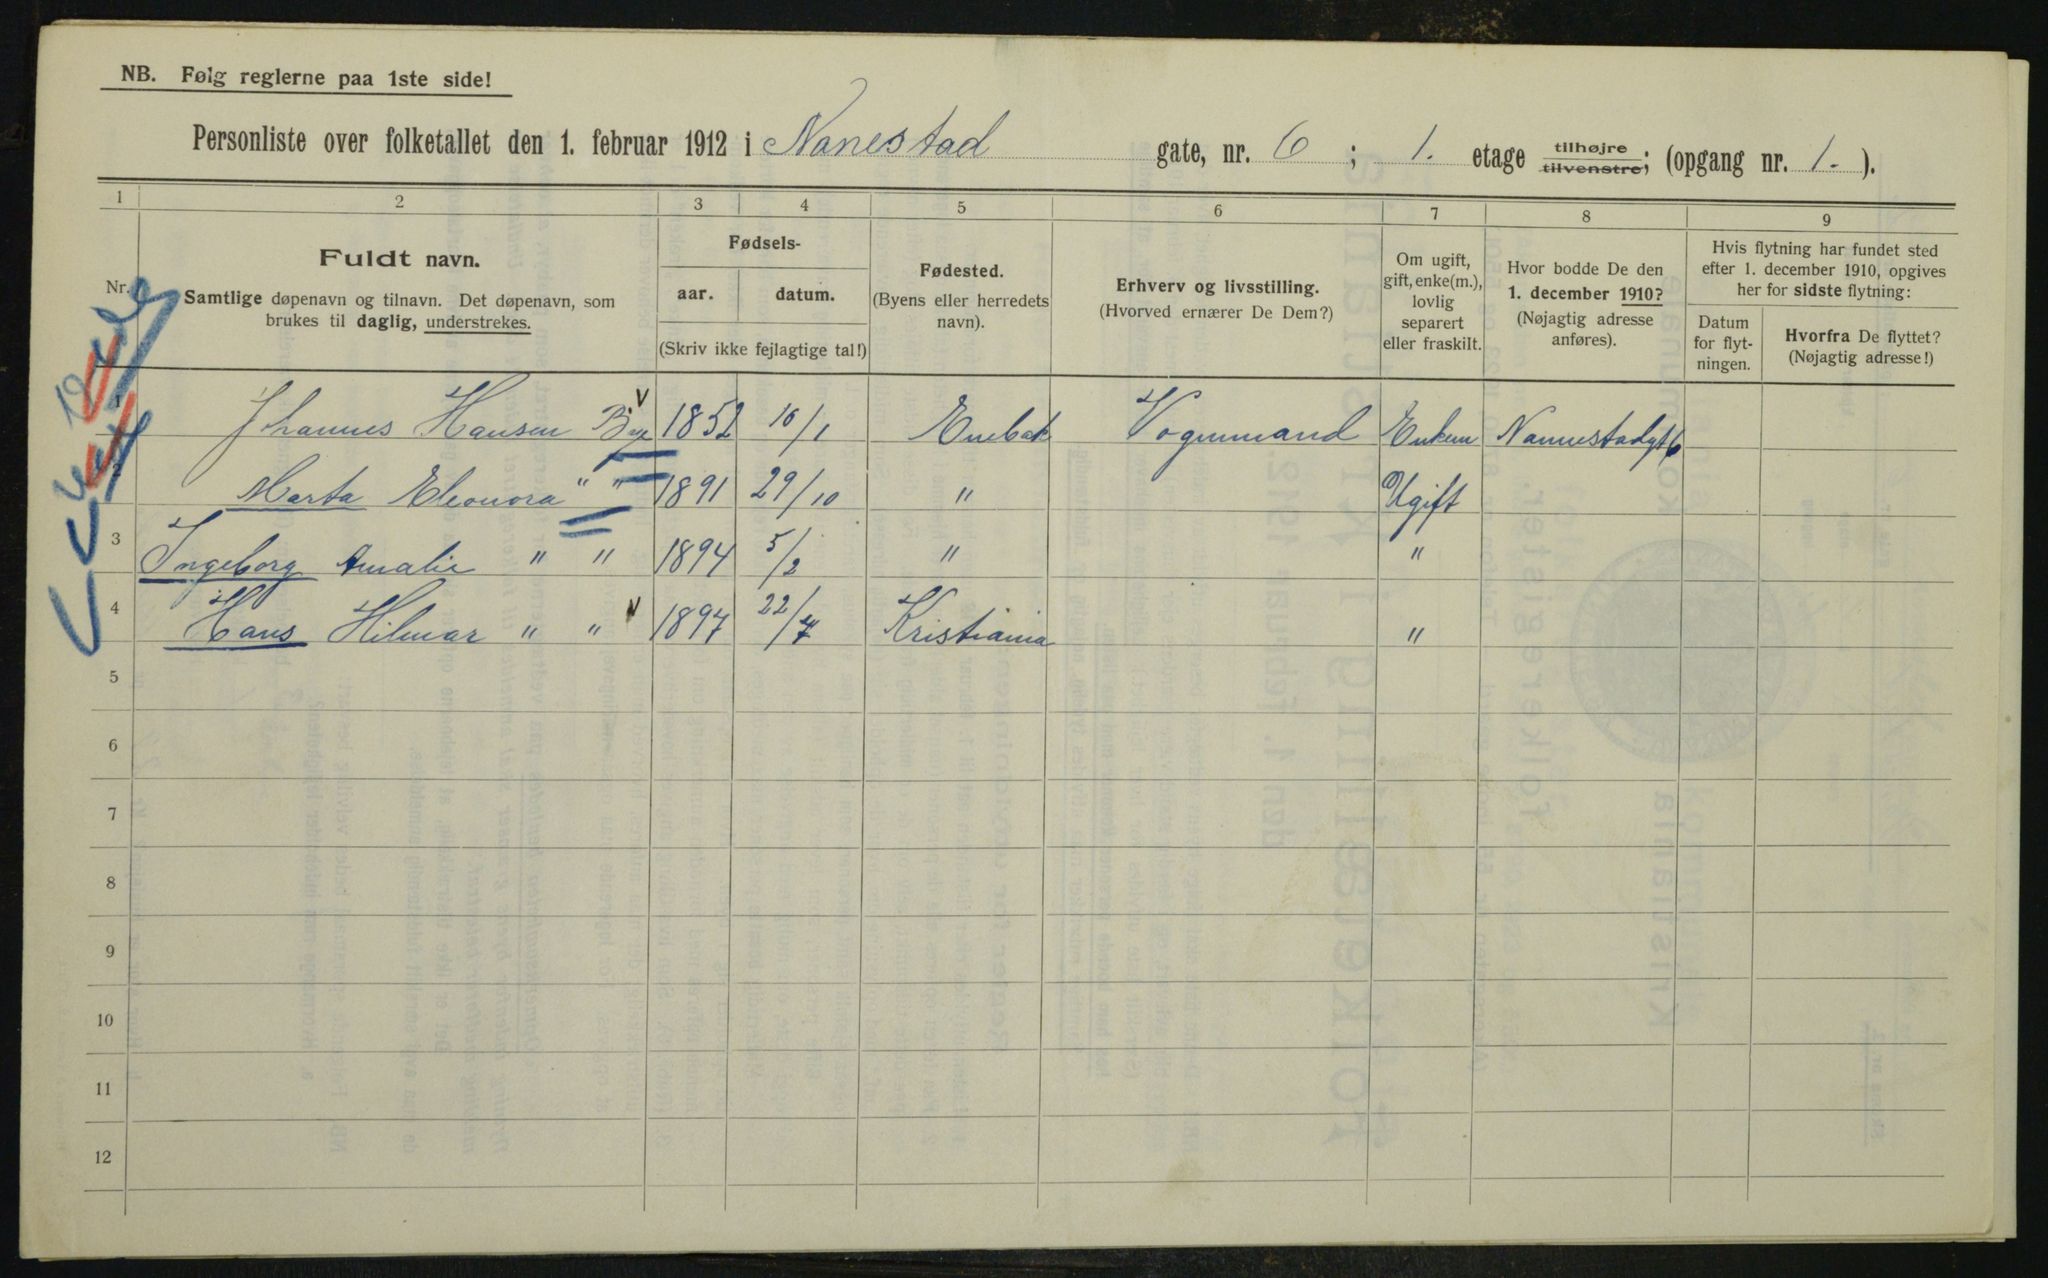 NB. Følg reglerne paa 1ste side!
Personliste over folketallet den 1. februar 1912 i Nanestad gate, nr. 6; 1. etage tilhøjre tilvenstre; (opgang nr. 1.).
1 2 3 4 5 6 7 8 9
Nr. Fuldt navn.
Samtlige døpenavn og tilnavn. Det døpenavn, som
brukes til daglig, understrekes.
Fødsels-
aar. datum.
(Skriv ikke fejlagtige tal!)
Fødested.
(Byens eller herredets
navn).
Erhverv og livsstilling.
(Hvorved ernærer De Dem?)
Om ugift,
gift, enke(m.),
lovlig
separert
eller fraskilt.
Hvor bodde De den
1. december 1910?
(Nøjagtig adresse
anføres).
Hvis flytning har fundet sted
efter 1. december 1910, opgives
her for sidste flytning:
Datum
for flyt-
ningen.
Hvorfra De flyttet?
(Nøjagtig adresse!)
1 Johannes Hansen Bye 1852 16/1 Enebak Vognmand Enkem Nannestadgt 6
2 Marta Eleonora " " 1891 29/10 " Ugift
3 Ingeborg Amalie " " 1894 5/2 " "
4 Hans Hilmar " " 1897 22/7 Kristiania "
5
6
7
8
9
10
11
12